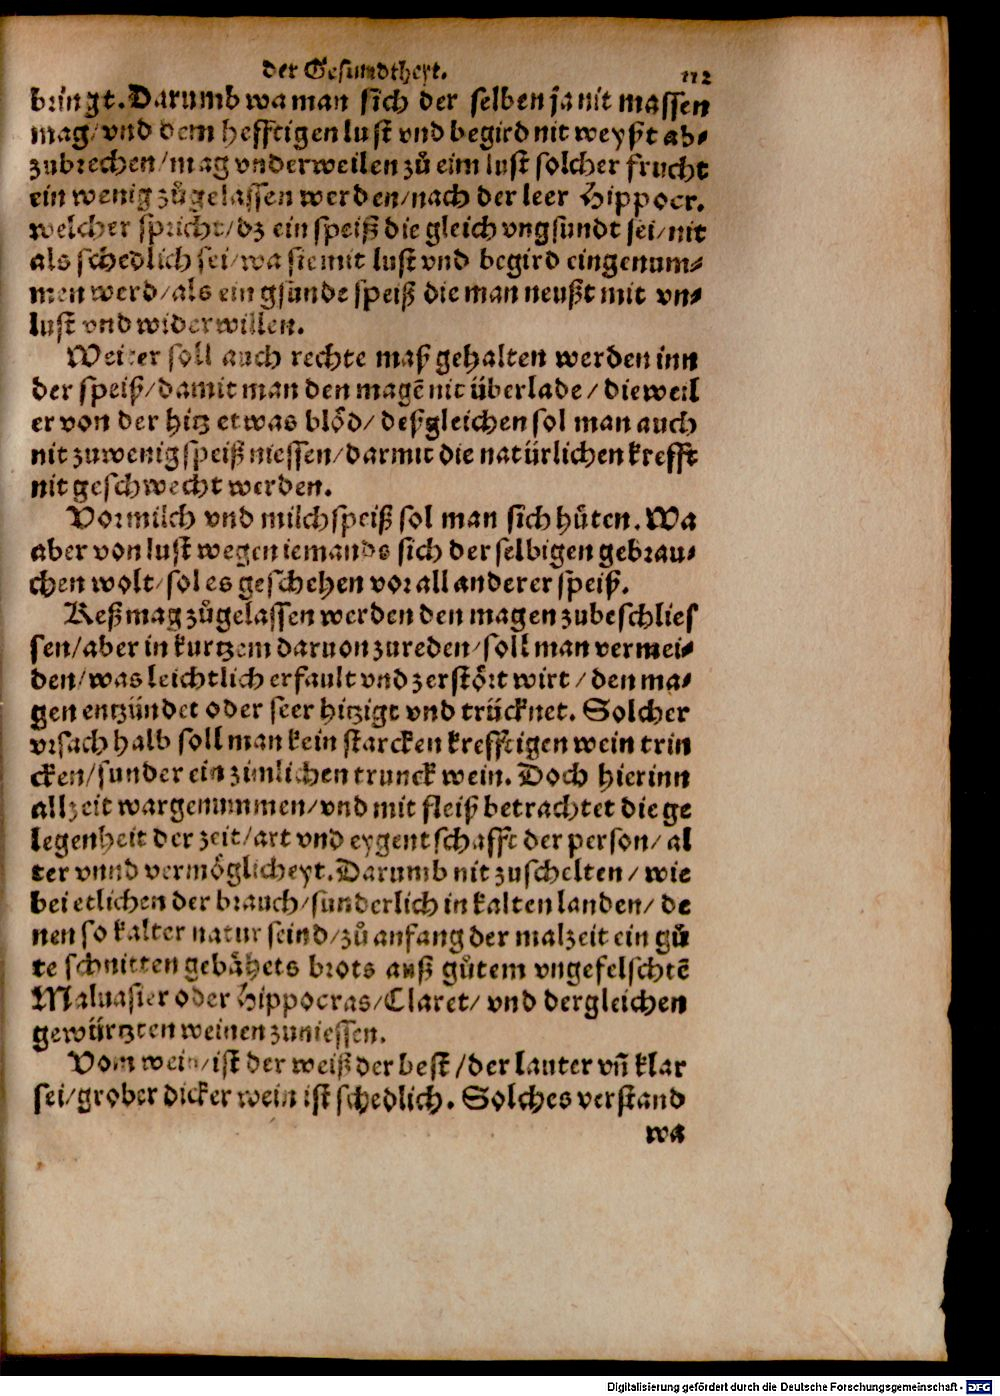 der Gesundtheyt. 112
bringt. Darumb wa man sich der selben ja nit massen
mag/ vnd dem hefftigen lust vnd begird nit weyßt ab⸗
zubrechen/ mag vnderweilen zů eim lust solcher frucht
ein wenig zůgelassen werden/ nach der leer Hippocr.
welcher spricht/ dz ein speiß die gleich vngsundt sei/ nit
als schedlich sei/ wa sie mit lust vnd begird eingenum⸗
men werd/ als ein gsunde speiß die man neußt mit vn⸗
lust vnd widerwillen.
Weiter soll auch rechte maß gehalten werden inn
der speiß/ damit man den magē nit überlade/ dieweil
er von der hitz etwas blöd/ deßgleichen sol man auch
nit zuwenig speiß niessen/ darmit die natürlichen krefft
nit geschwecht werden.
Vor milch vnd milchspeiß sol man sich hüten. Wa
aber von lust wegen iemands sich der selbigen gebrau⸗
chen wolt/ sol es geschehen vor all anderer speiß.
Keß mag zůgelassen werden den magen zubeschlies
sen/ aber in kurtzem daruon zureden/ soll man vermei⸗
den/ was leichtlich erfault vnd zerstört wirt/ den ma⸗
gen entzündet oder seer hitzigt vnd trücknet. Solcher
vrsach halb soll man kein starcken krefftigen wein trin
cken/ sunder ein zimlichen trunck wein. Doch hierinn
allzeit wargenummen/ vnd mit fleiß betrachtet die ge
legenheit der zeit/ art vnd eygentschafft der person/ al
ter vnnd vermöglicheyt. Darumb nit zuschelten/ wie
bei etlichen der brauch/ sunderlich in kalten landen/ de
nen so kalter natur seind/ zů anfang der malzeit ein gů
te schnitten gebähets brots auß gůtem vngefelschtē
Maluasier oder Hippocras/ Claret/ vnd dergleichen
gewürtzten weinen zuniessen.
Vom wein/ ist der weiß der best/ der lauter vñ klar
sei/ grober dicker wein ist schedlich. Solches verstand
wa
Digitalisierung gefördert durch die Deutsche Forschungsgemeinschaft - DFG